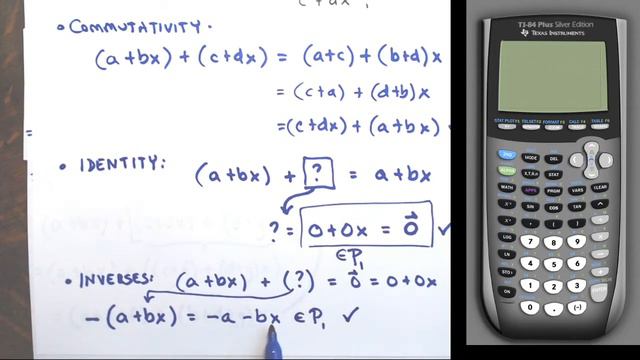 c + dx
• COMMUTATIVITY.
(a+bx) + (c+dx) = (a+c) + (b+d)x
= (c+a) + (d+b)x
=
= (c+dx) + (a+bx) ✓
• IDENTITY: (a+bx) + ? = a+bx
? = 0+0x = 0⃗ ✓
∈P₁
• INVERSES: (a+bx) + (?) = 0⃗ = 0+0x
-(a+bx) = -a -bx ∈P₁ ✓
TI-84 Plus Silver Edition
TEXAS INSTRUMENTS
STAT PLOT F1 TBLSET F2 FORMAT F3 CALC F4 TABLE F5
2ND MODE DEL
ALPHA X,T,θ,n STAT
MATH APPS PRGM VARS CLEAR
x⁻¹ SIN COS TAN ^
x² , ( ) ÷
LOG 7 8 9 ×
LN 4 5 6 −
STO▸ 1 2 3 +
ON 0 . (-) ENTER